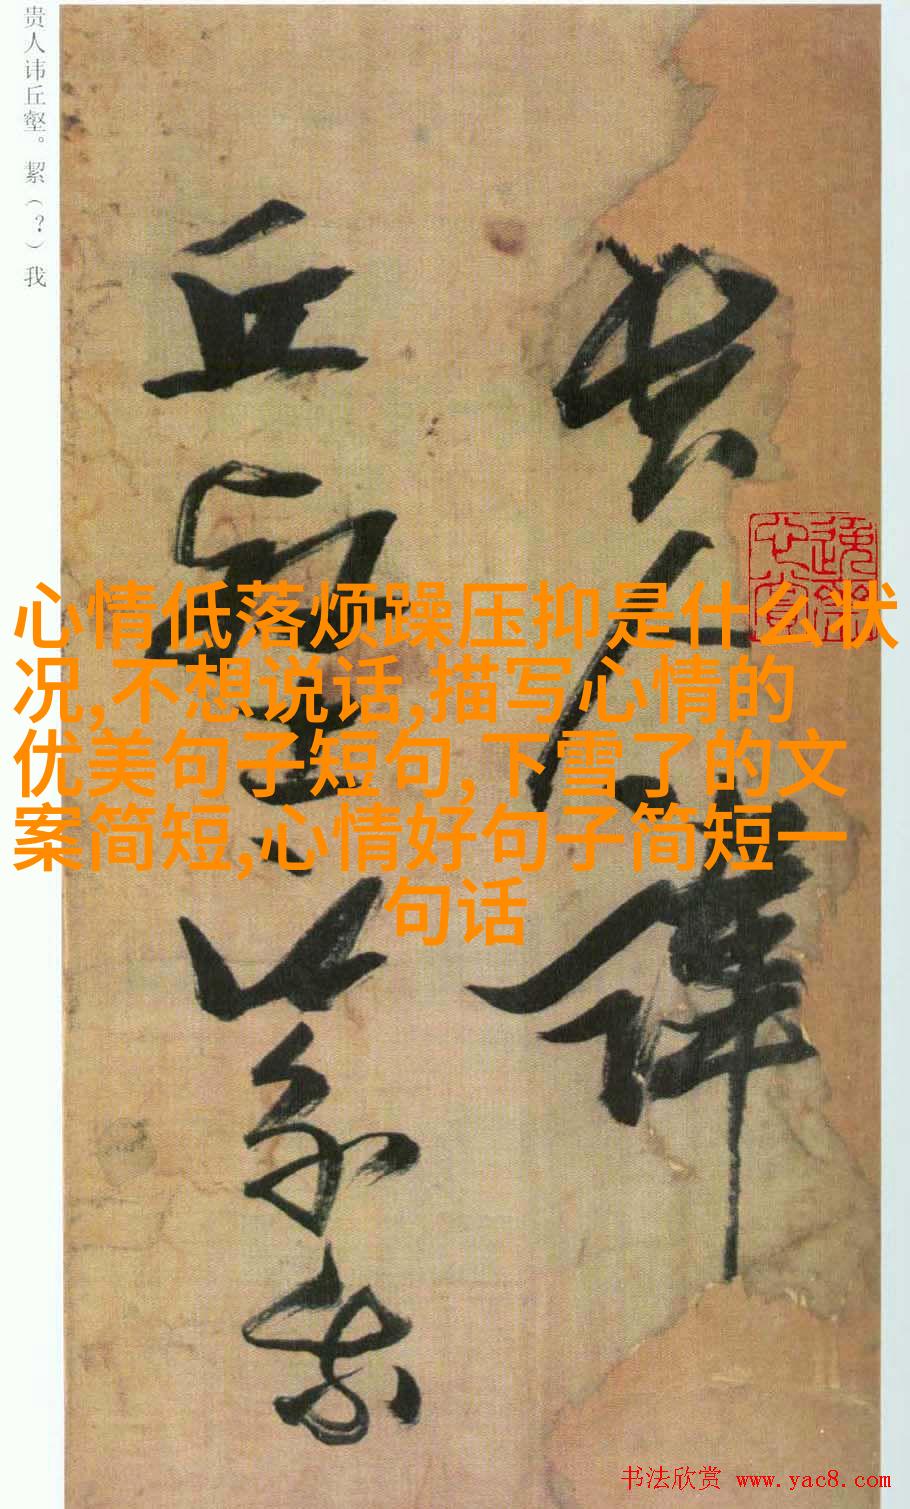 贵人讳丘壑。絜（？）我
贵人讳
丘壑以
絜我
心情低落烦躁压抑是什么状
况,不想说话,描写心情的
优美句子短句,下雪了的文
案简短,心情好句子简短一
句话
书法欣赏 www.yac8.com